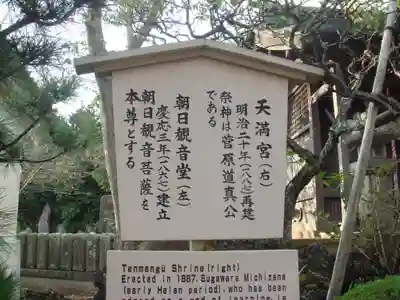 天満宮(右)
明治二十年(一八八七)再建
祭神は菅原道真公
である
朝日観音堂(左)
慶応三年(一八六七)建立
朝日観音菩薩を
本尊とする
Tenmangū Shrine(right)
Erected in 1887.Sugawara Michizane
(early Heian period), who has been